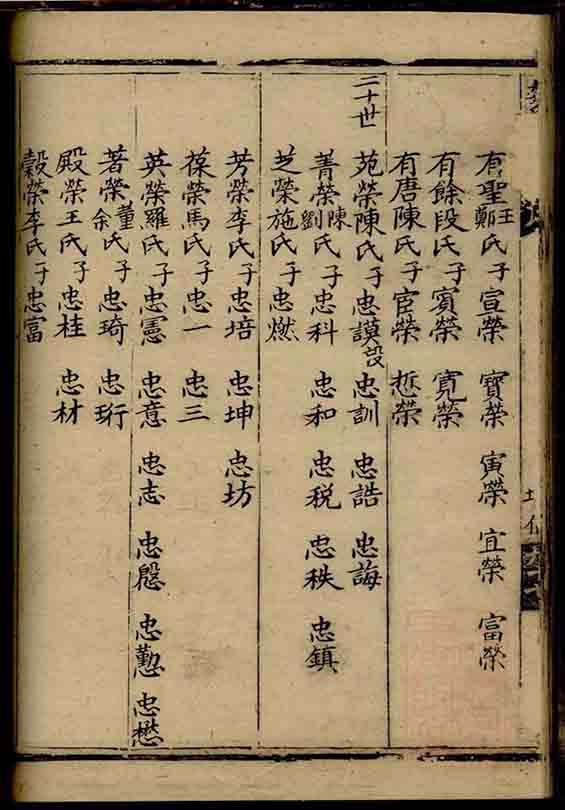 有聖王鄭氏子宣榮 寶榮 寅榮 宜榮 富榮
有餘段氏子賓榮 寬榮
有唐陳氏子宦榮 悊榮
二十世
苑榮陳氏子忠謨殁 忠訓 忠誥 忠誨
菁榮陳劉氏子忠科 忠和 忠税 忠秩 忠鎮
芝榮施氏子忠燃
芳榮李氏子忠培 忠坤 忠坊
葆榮馬氏子忠一 忠三
英榮羅氏子忠憲 忠意 忠志 忠慇 忠懃 忠懋
著榮董余氏子忠琦 忠珩
殿榮王氏子忠桂 忠材
穀榮李氏子忠富